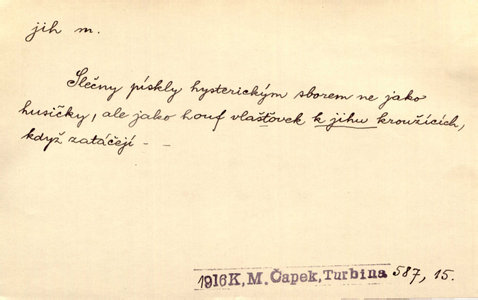 jih m.
Slečny pískly hysterickým sborem ne jako
husičky, ale jako houf vlašťovek k jihu kroužících,
když zatáčejí - -
1916 K. M. Čapek, Turbina 587, 15.